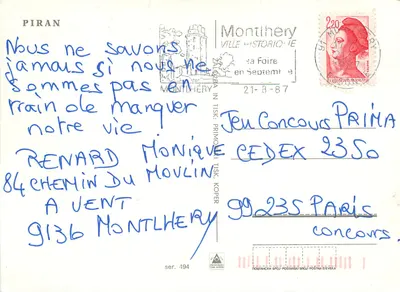 PIRAN
Nous ne savons
jamais si nous ne
sommes pas en
train de manquer
notre vie.
RENARD MONIQUE
84 CHEMIN DU MOULIN
A VENT
9136 MONTLHERY
Montlhery
VILLE HISTORIQUE
sa Foire
en Septembre
MONTLHERY
21-9-87
2,20
JEU CONCOURS PRIMA
CEDEX 2350
99235 PARIS
CONCOURS.
TISK, KOPER
ser. 494